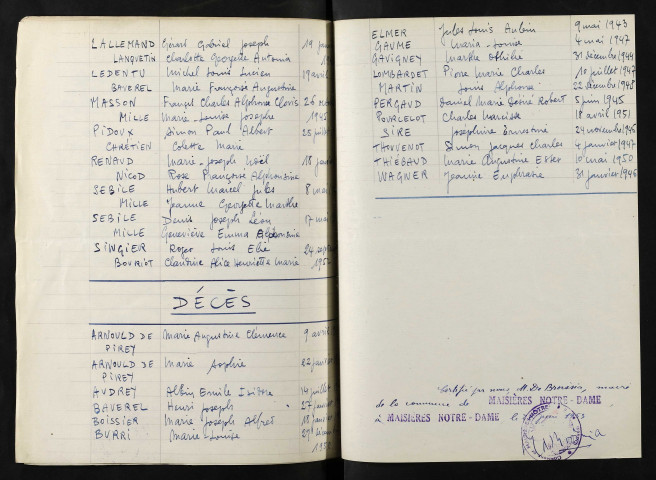 LALLEMAND Gérard Gabriel Joseph 19
LANQUETIN Charlotte Georgette Antonia
LEDENTU Michel Louis Lucien 19 avril
BAVEREL Marie Françoise Augustine
MASSON Charles Alphonse Clovis 26
MILLE Marie-Louise Josephe 1945
PIDOUX Simon Paul Albert 28
CHRÉTIEN Colette Marie
RENAUD Marie-Joseph Noël 18
NICOD Rose Françoise Alphonsine
SEBILE Hubert Marcel Jules 8 mai
MILLE Jeanne Georgette Marthe
SEBILE Denis Joseph Léon 17 mai
MILLE Geneviève Emma Alphonsine
SINGIER Roger Louis Elie 24 sept
BOURIOT Claudine Alice Henriette Marie
DÉCÈS
ARNOULD DE PIREY Marie Augustine Clémence 9 avril
ARNOULD DE PIREY Marie Sophie 22 janvier
AUDREY Albin Emile Isidore 14 juillet
BAVEREL Henri Joseph 27 janvier
BOISSIER Marie Joseph Alfred 18 janvier
BURRI Marie-Louise
ELMER Jules Louis Aubin 9 mai 1943
GAUME Marie-Louise 4 mai 1947
GAVIGNEY Marthe Othilie 31 décembre 1944
LOMBARDET Pierre Marie Charles 10 juillet 1947
MARTIN Louis Alphonse 22 décembre 1948
PERGAUD Daniel Marie Robert 5 juin 1945
POURCELOT Charles Narcisse 18 avril 1951
SIRE Josephine Ernestine 24 novembre 1946
THOUVENOT Simon Jacques Charles 4 janvier 1947
THIEBAUD Marie Augustine 10 mai 1950
WAGNER Jeanne Euphrasie 31 janvier 1946
Certifié par nous, maire
de la commune de MAISIÈRES NOTRE-DAME
à MAISIÈRES NOTRE-DAME le